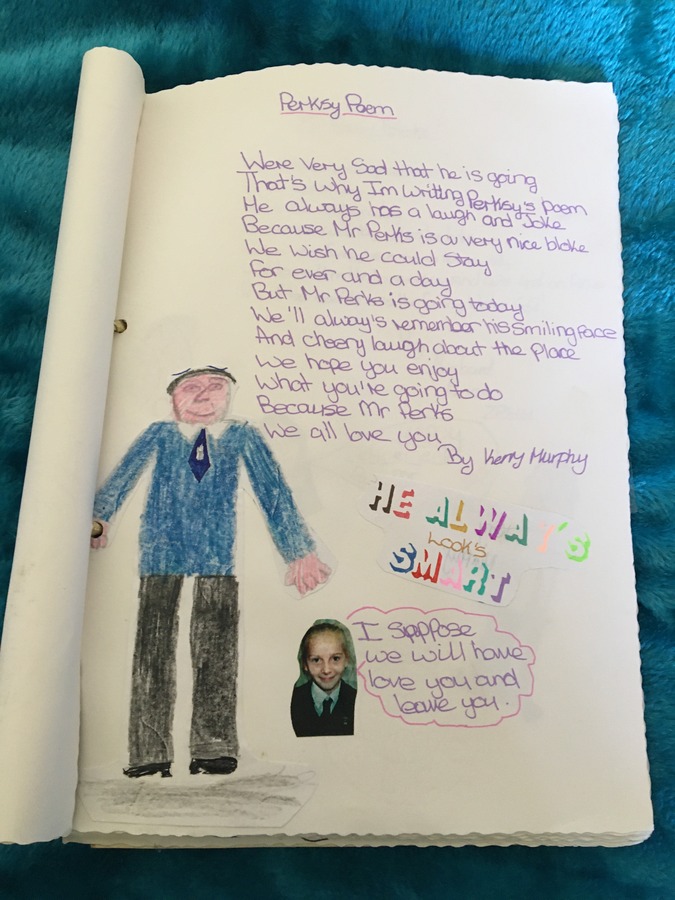 Perksy Poem
Were very Sad that he is going
That's why Im writting Perksy's poem
He always has a laugh and Joke
Because Mr Perks is a very nice bloke
We wish he could Stay
For ever and a day
But Mr Perks is going today
We'll alway's remember his Smiling Face
And cheery laugh about the Place
We hope you enjoy
What you're going to do
Because Mr Perks
We all love you
By Kerry Murphy
HE ALWAY'S
Look's
SMART
I Suppose
we will have
love you and
leave you.